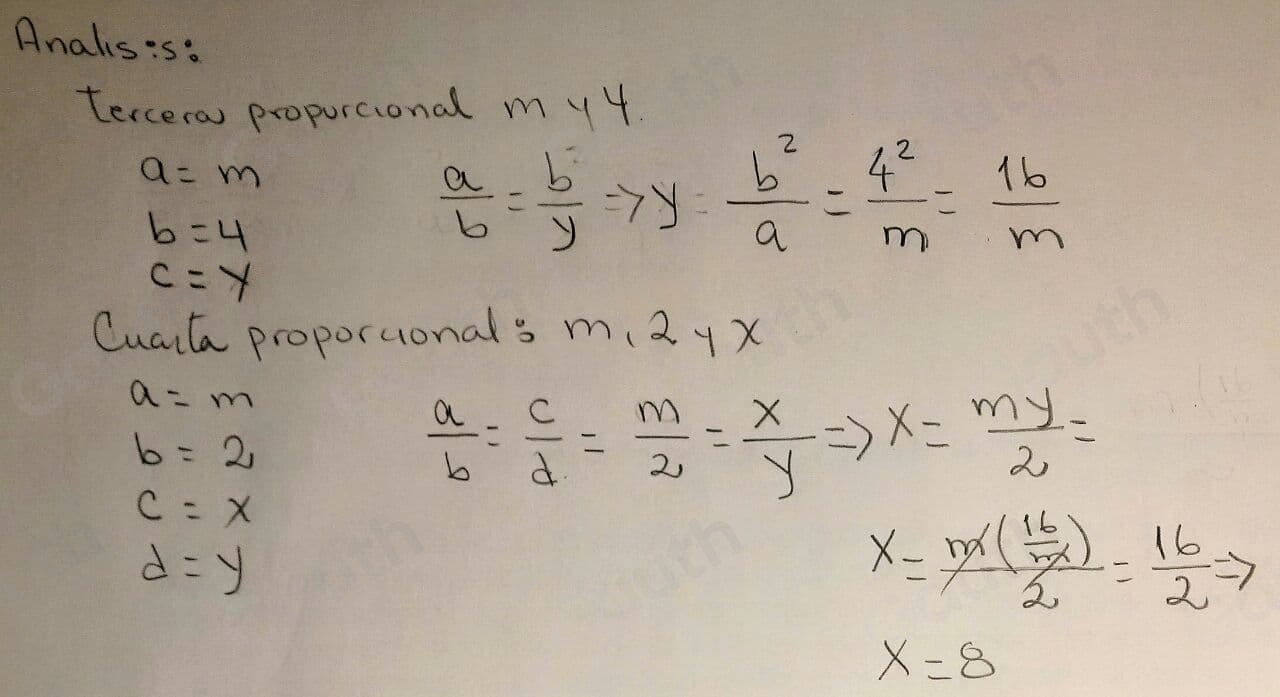 Analisis:
Tercera proporcional m y 4.
a = m
b = 4
c = y
a/b = b/y => y = b²/a = 4²/m = 16/m
Cuarta proporcional: m, 2 y x
a = m
b = 2
c = x
d = y
a/b = c/d = m/2 = x/y => x = my/2 =
x = m(16/m)/2 = 16/2 =>
x = 8